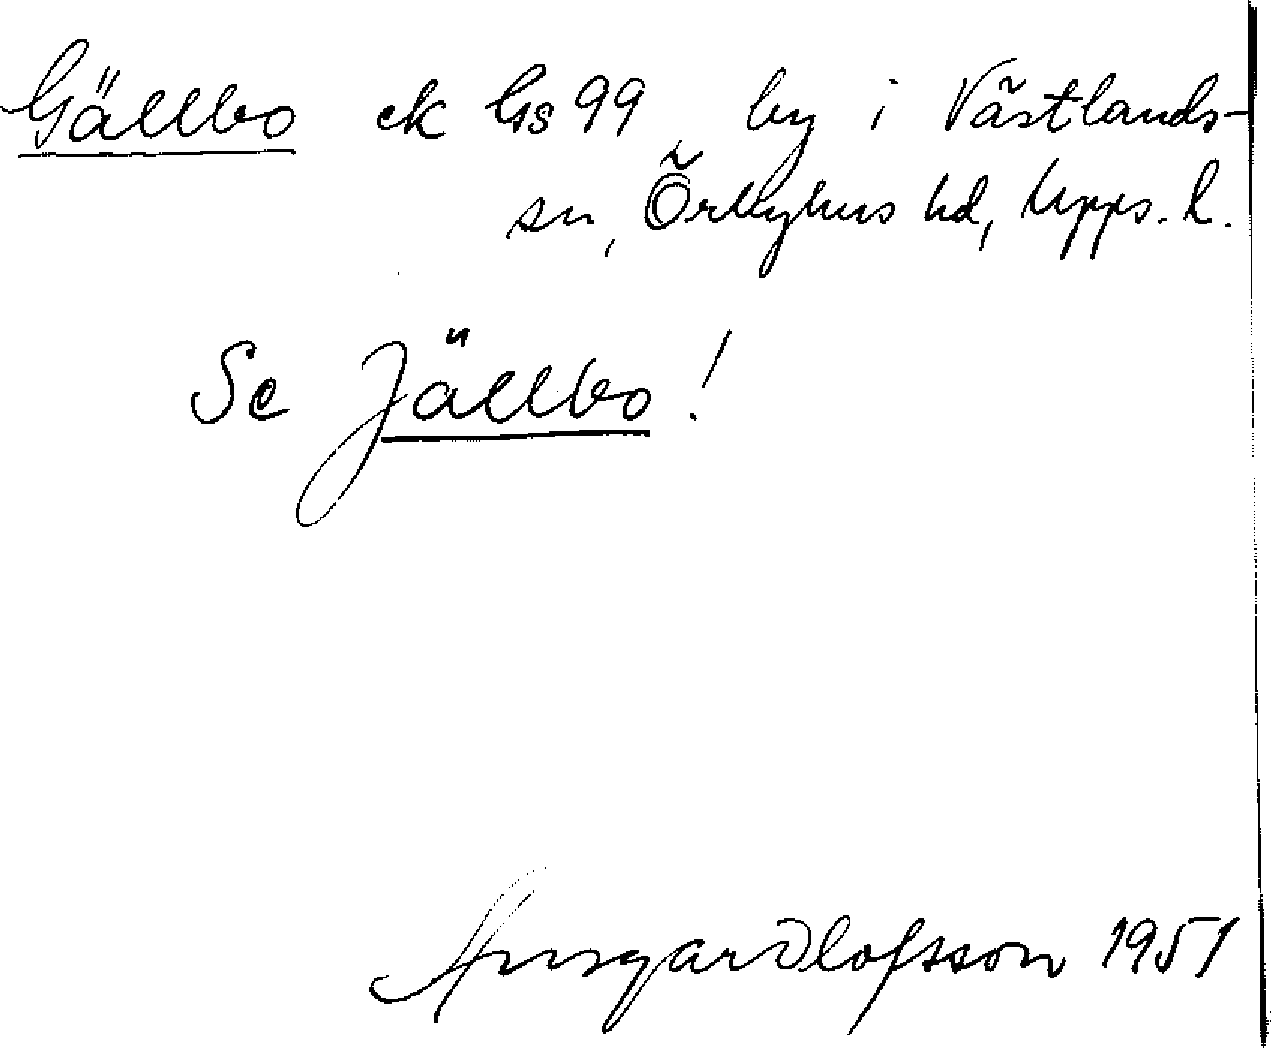 Gällbo ek Gs 99 by i Västlands-
sn, Örbyhus hd, Upps. l.
Se Jällbo!
Ansgar Olofsson 1951